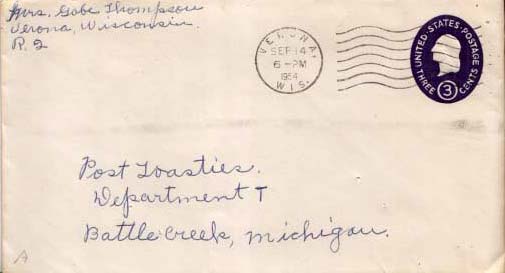 Mrs. Gabe Thompson
Verona, Wisconsin.
R. 2
VERONA,
SEP 14
6-PM
1954
WIS.
UNITED·STATES·POSTAGE
THREE 3 CENTS
Post Toasties.
Department T
Battle Creek, Michigan.
A